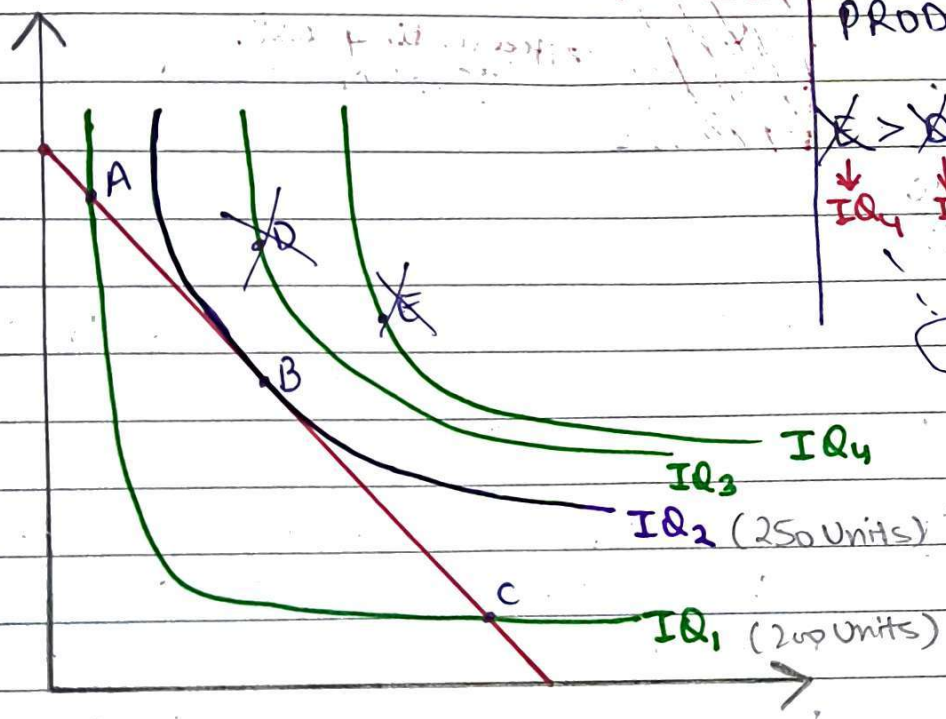 PROD
E >
IQ4
A
D
E
B
IQ4
IQ3
IQ2 (250 Units)
C
IQ1 (200 Units)